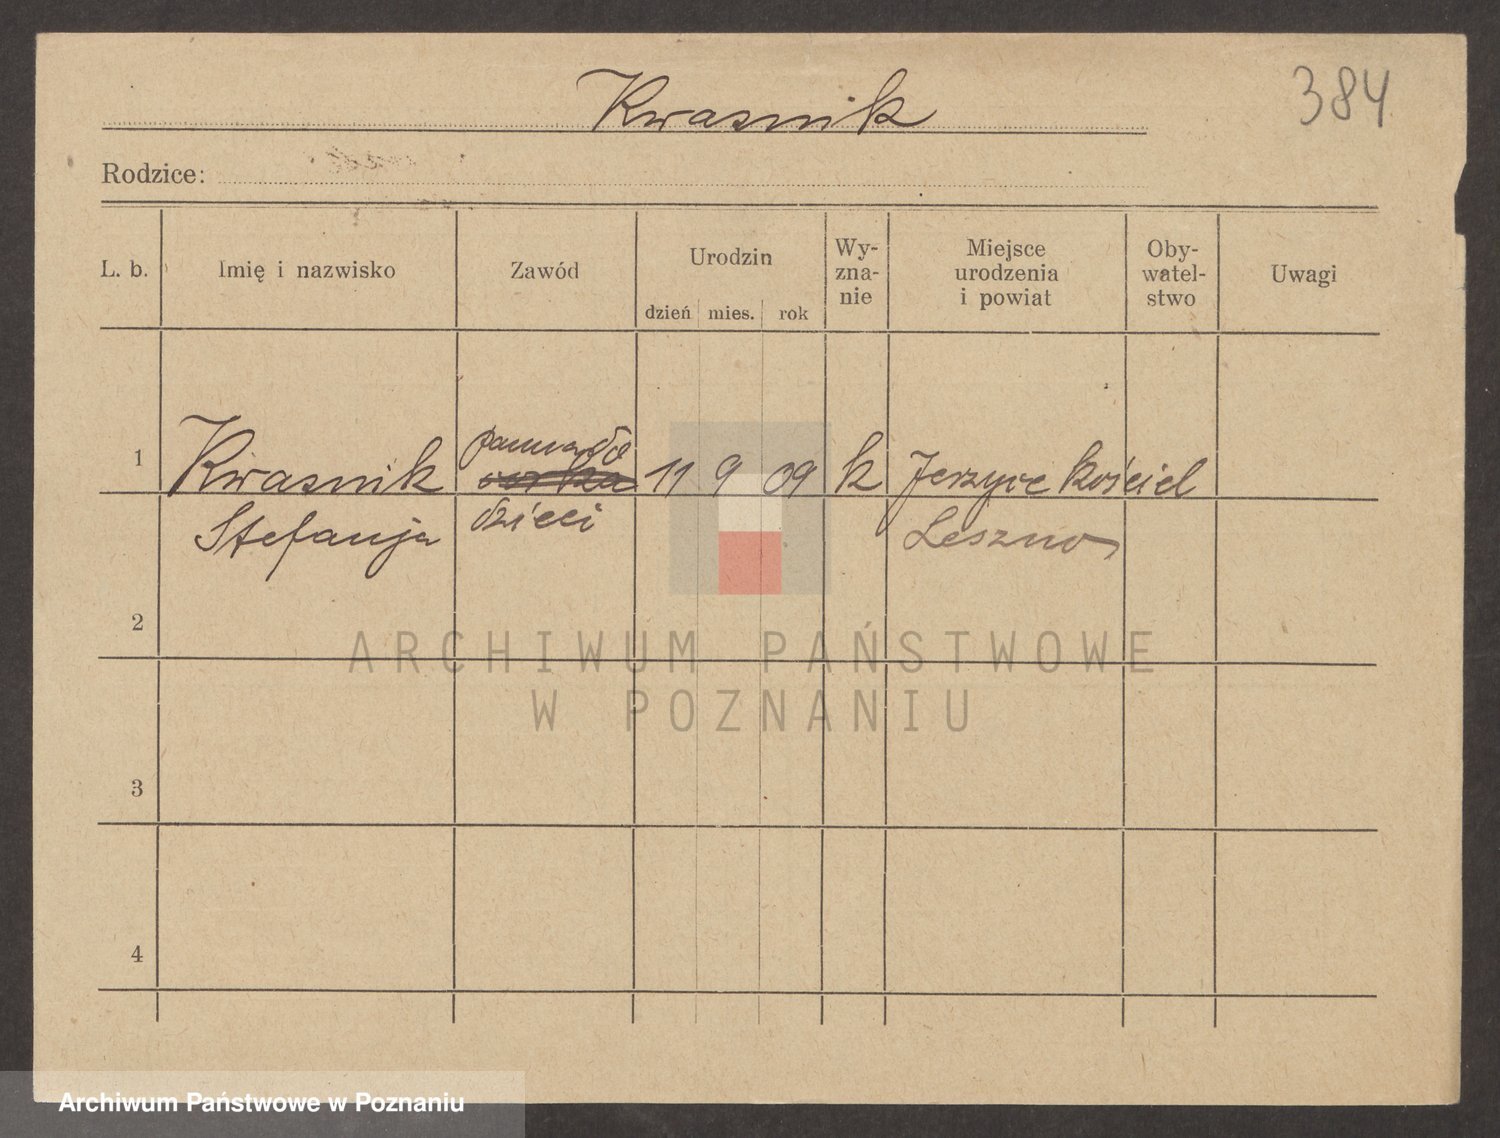 Kwasnik
384
Rodzice:
L. b.
Imię i nazwisko
Zawód
Urodzin
dzień mies. rok
Wy-
zna-
nie
Miejsce
urodzenia
i powiat
Oby-
watel-
stwo
Uwagi
1
Kwasnik
Stefanja
panna do
dzieci
11 9 09
k
Jerzyce kościel
Leszno
2
3
4
ARCHIWUM PAŃSTWOWE
W POZNANIU
Archiwum Państwowe w Poznaniu